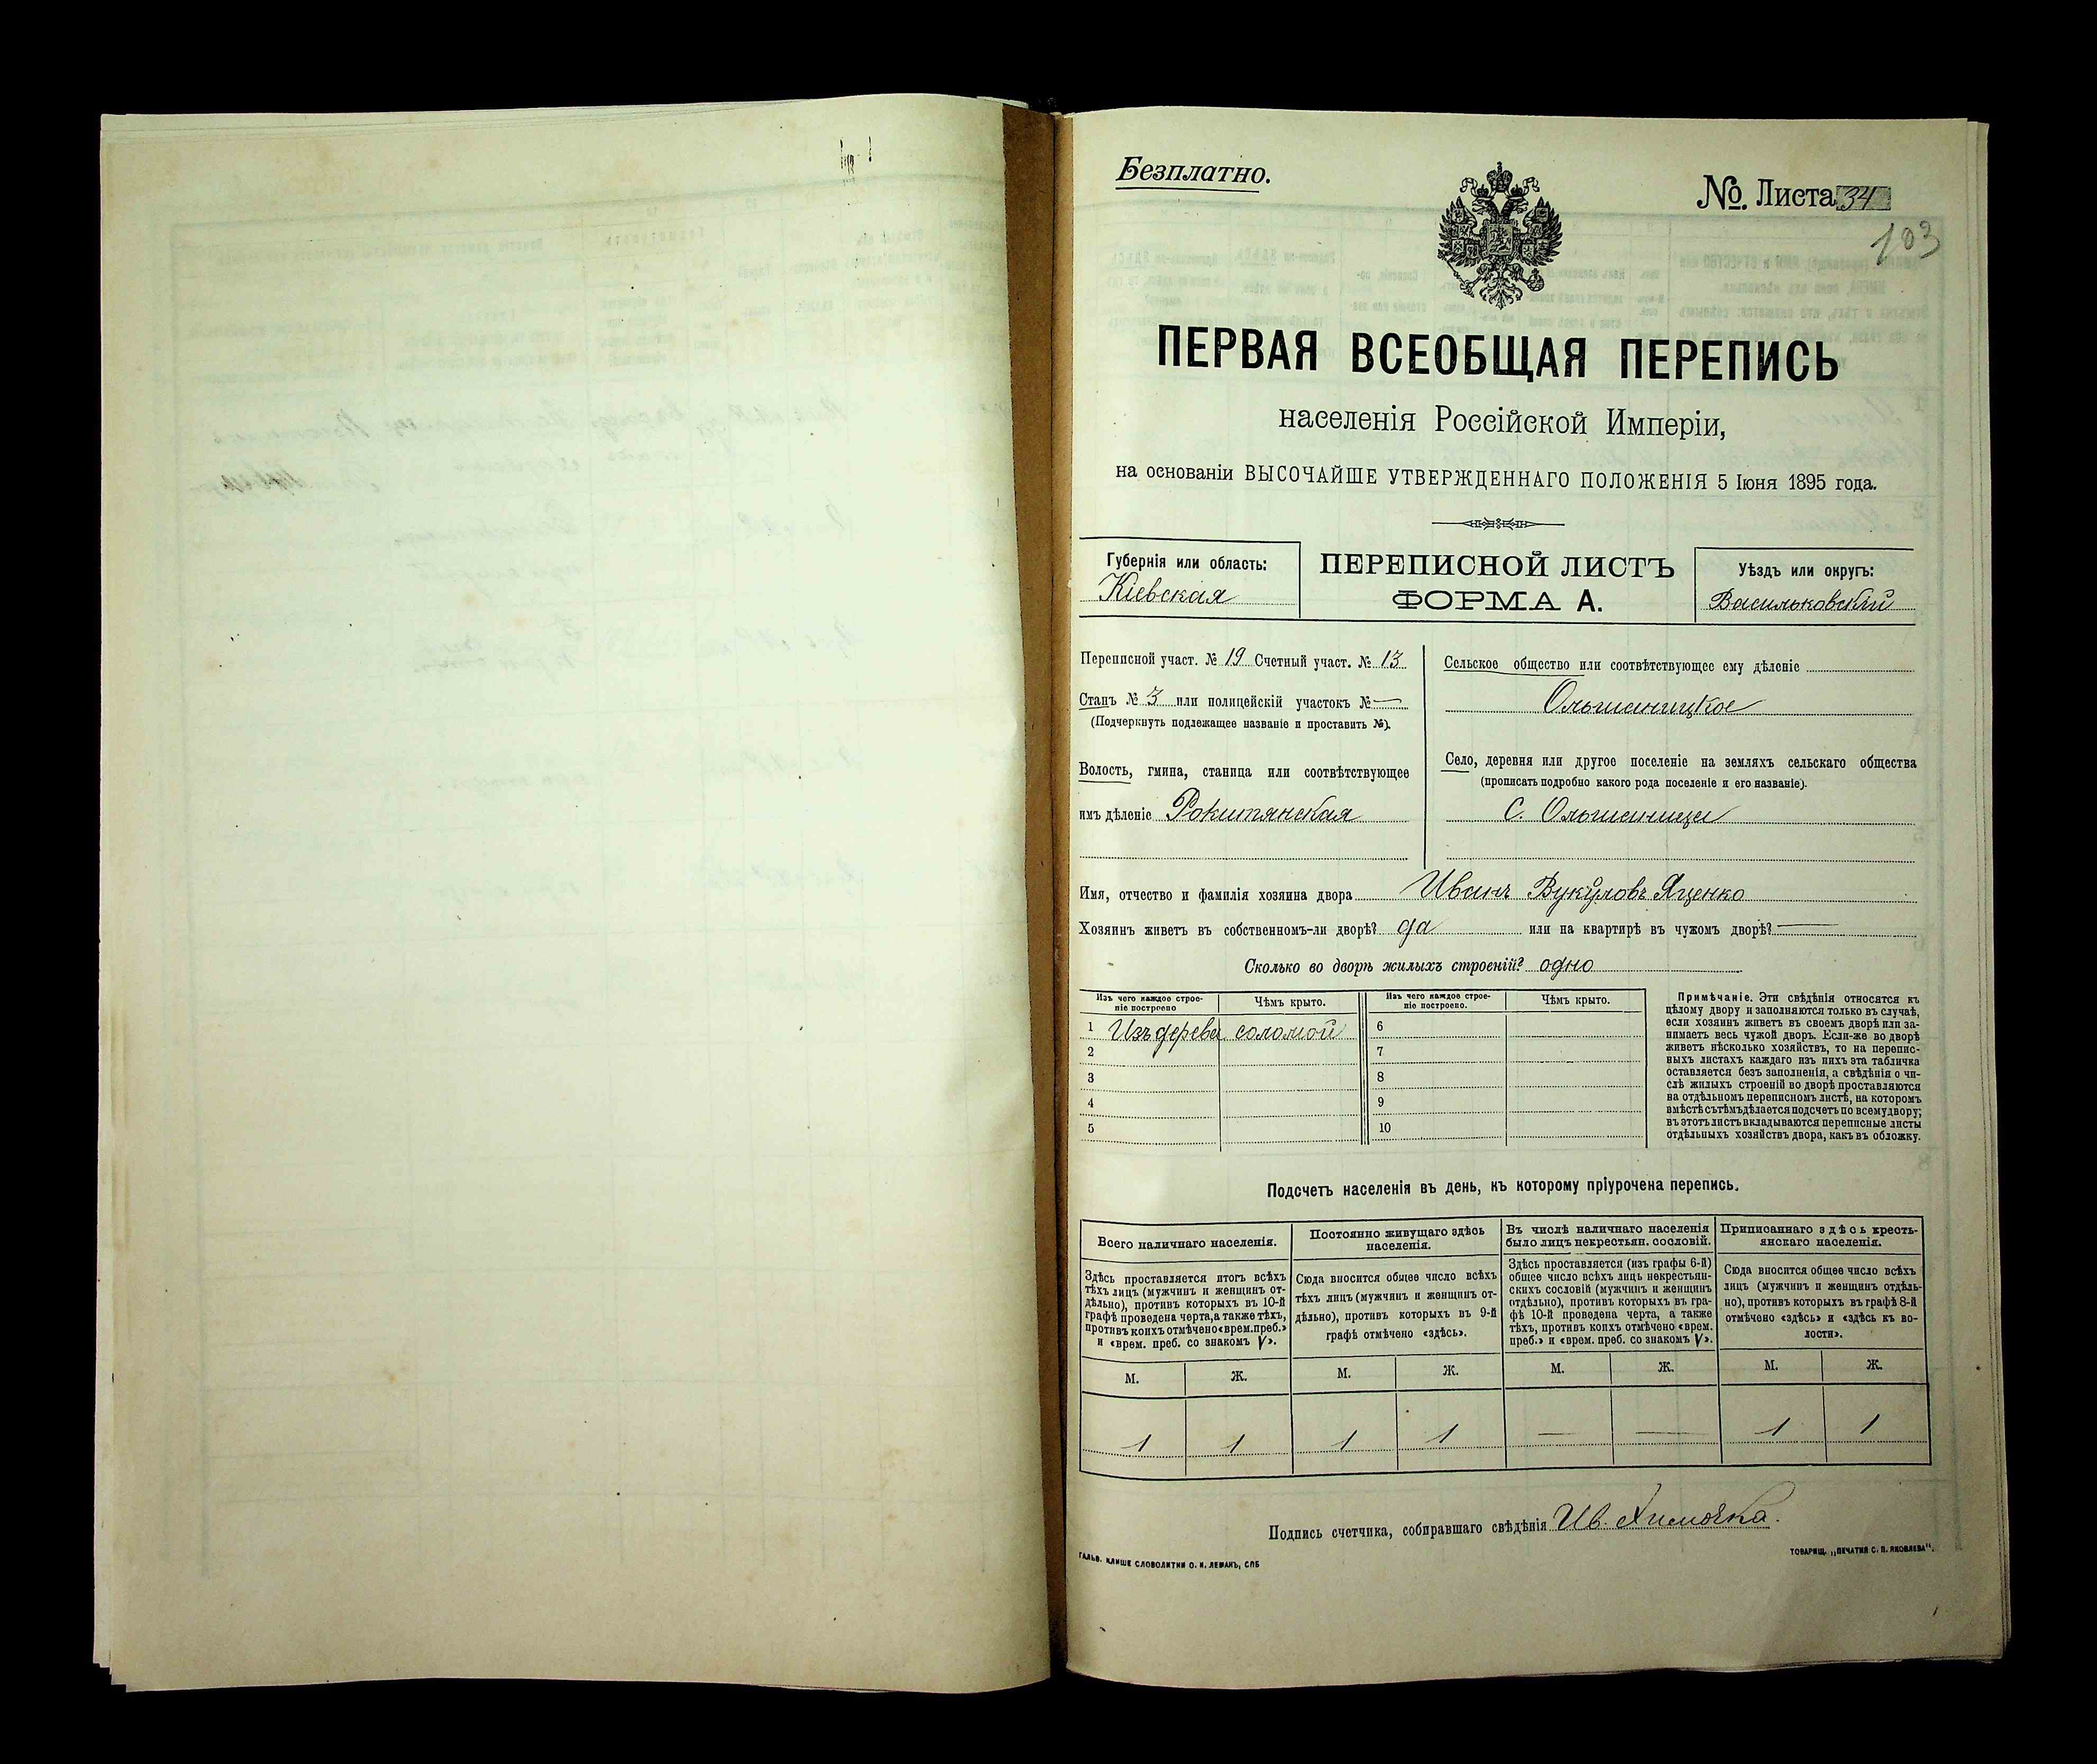 Безплатно.
№. Листа 34
103
ПЕРВАЯ ВСЕОБЩАЯ ПЕРЕПИСЬ
населенія Россійской Имперіи,
на основаніи ВЫСОЧАЙШЕ УТВЕРЖДЕННАГО ПОЛОЖЕНІЯ 5 Іюня 1895 года.
Губернія или область:
Кіевская
ПЕРЕПИСНОЙ ЛИСТЪ
ФОРМА А.
Уѣздъ или округъ:
Васильковскій
Переписной участ. № 19 Счетный участ. № 13
Станъ № 3 или полицейскій участокъ № —
(Подчеркнуть подлежащее названіе и проставить №).
Волость, гмина, станица или соотвѣтствующее
имъ дѣленіе Рокитянская
Сельское общество или соотвѣтствующее ему дѣленіе
Ольшаницкое
Село, деревня или другое поселеніе на земляхъ сельскаго общества
(прописать подробно какого рода поселеніе и его названіе).
С. Ольшаницы
Имя, отчество и фамилія хозяина двора Иванъ Вукуловъ Яценко
Хозяинъ живетъ въ собственномъ-ли дворѣ? да или на квартирѣ въ чужомъ дворѣ? —
Сколько во дворѣ жилыхъ строеній? одно
Изъ чего каждое строе-
ніе построено
Чѣмъ крыто.
Изъ чего каждое строе-
ніе построено.
Чѣмъ крыто.
1 Изъ дерева соломой 6
2 7
3 8
4 9
5 10
Примѣчаніе. Эти свѣдѣнія относятся къ
цѣлому двору и заполняются только въ случаѣ,
если хозяинъ живетъ въ своемъ дворѣ или за-
нимаетъ весь чужой дворъ. Если-же во дворѣ
живетъ нѣсколько хозяйствъ, то на перепис-
ныхъ листахъ каждаго изъ нихъ эта табличка
оставляется безъ заполненія, а свѣдѣнія о чи-
слѣ жилыхъ строеній во дворѣ проставляются
на отдѣльномъ переписномъ листѣ, на которомъ
вмѣстѣ съ тѣмъ дѣлается подсчетъ по всему двору;
въ этотъ листъ вкладываются переписные листы
отдѣльныхъ хозяйствъ двора, какъ въ обложку.
Подсчетъ населенія въ день, къ которому пріурочена перепись.
Всего наличнаго населенія.
Постоянно живущаго здѣсь
населенія.
Въ числѣ наличнаго населенія
было лицъ некрестьян. сословій.
Приписаннаго здѣсь кресть-
янскаго населенія.
Здѣсь проставляется итогъ всѣхъ
тѣхъ лицъ (мужчинъ и женщинъ от-
дѣльно), противъ которыхъ въ 10-й
графѣ проведена черта, а также тѣхъ,
противъ коихъ отмѣчено «врем. преб.»
и «врем. преб. со знакомъ V».
Сюда вносится общее число всѣхъ
тѣхъ лицъ (мужчинъ и женщинъ от-
дѣльно), противъ которыхъ въ 9-й
графѣ отмѣчено «здѣсь».
Здѣсь проставляется (изъ графы 6-й)
общее число всѣхъ лицъ некрестьян-
скихъ сословій (мужчинъ и женщинъ
отдѣльно), противъ которыхъ въ гра-
фѣ 10-й проведена черта, а также
тѣхъ, противъ коихъ отмѣчено «врем.
преб.» и «врем. преб. со знакомъ V».
Сюда вносится общее число всѣхъ
лицъ (мужчинъ и женщинъ отдѣль-
но), противъ которыхъ въ графѣ 8-й
отмѣчено «здѣсь» и «здѣсь къ во-
лости».
М. Ж. М. Ж. М. Ж. М. Ж.
1 1 1 1 — — 1 1
Подпись счетчика, собиравшаго свѣдѣнія Ив.
ГАЛЬВ. КЛИШЕ СЛОВОЛИТНИ О. И. ЛЕМАНЪ, СПБ
ТОВАРИЩ. „ПЕЧАТНЯ С. П. ЯКОВЛЕВА“.